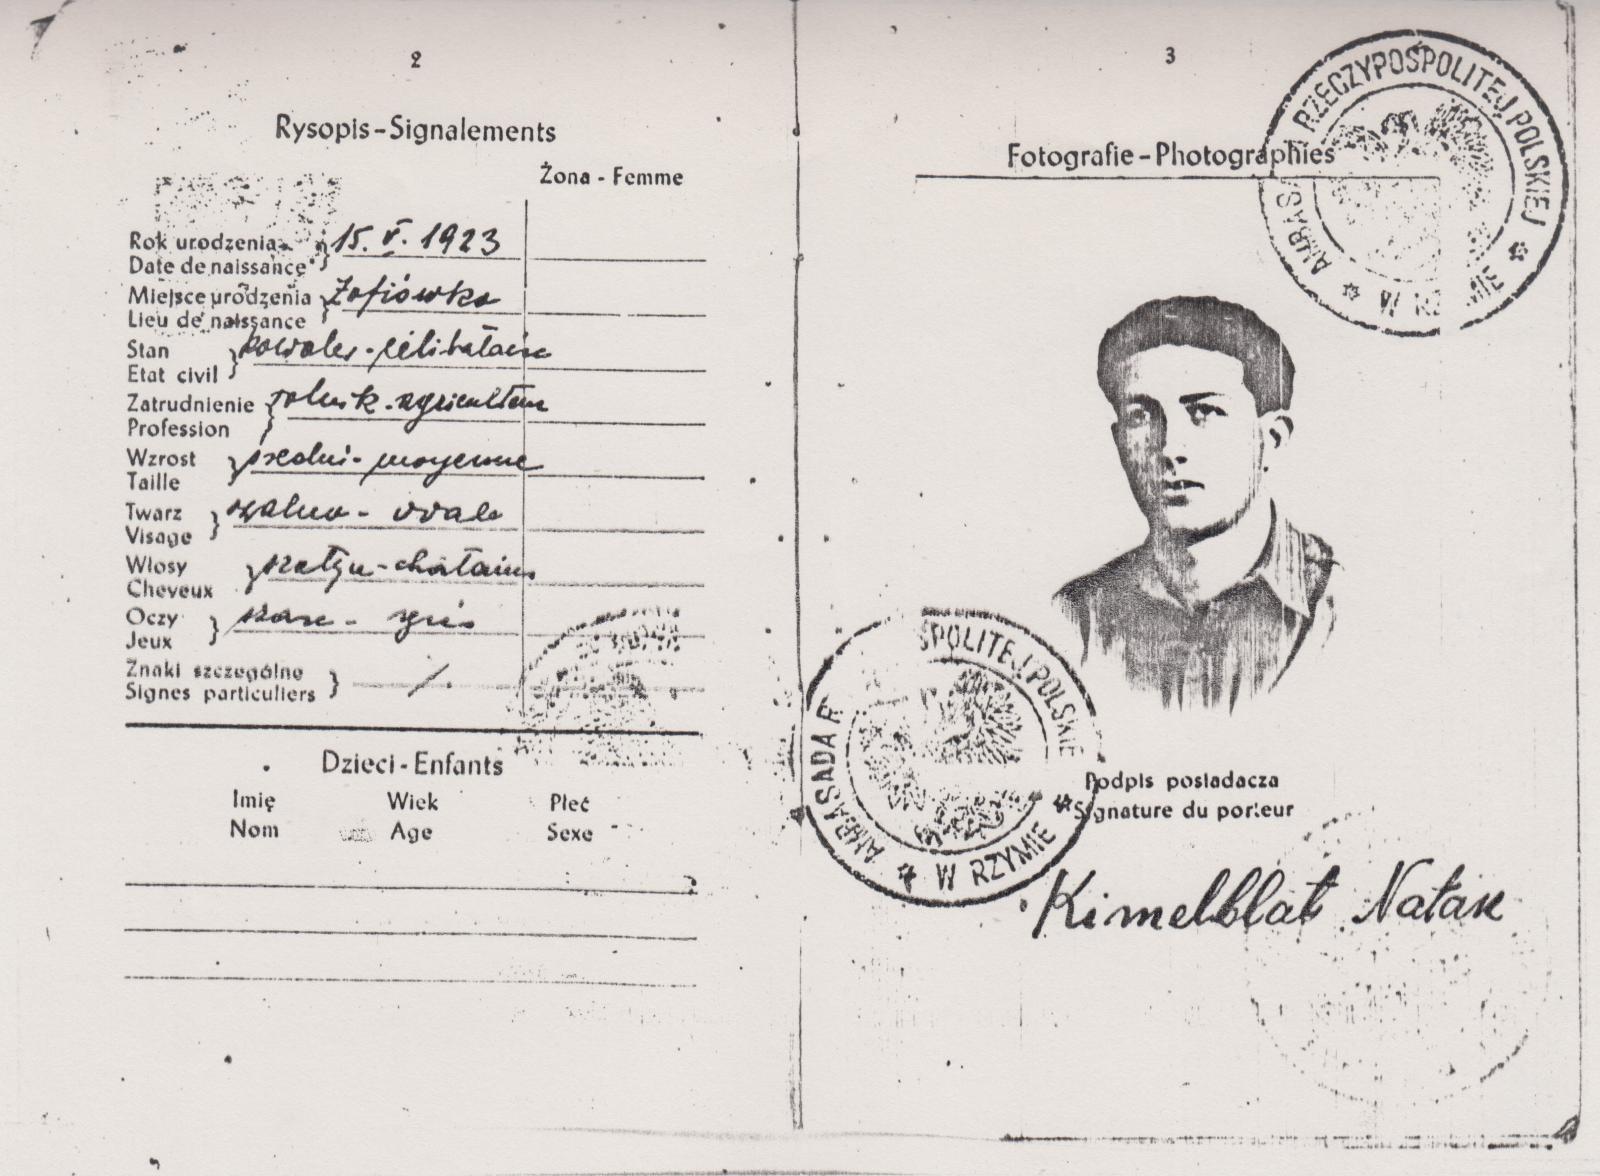 2
Rysopis-Signalements
Żona - Femme
Rok urodzenia
Date de naissance
15. V. 1923
Miejsce urodzenia
Lieu de naissance
Zofiówka
Stan
Etat civil
kawaler - célibataire
Zatrudnienie
Profession
rolnik - agriculteur
Wzrost
Taille
średni - moyenne
Twarz
Visage
owalna - ovale
Włosy
Cheveux
szatyn - châtains
Oczy
Jeux
szare - gris
Znaki szczególne
Signes particuliers
/.
Dzieci-Enfants
Imię Wiek Płeć
Nom Age Sexe
3
Fotografie-Photographies
RZECZYPOSPOLITEJ POLSKIEJ
SPOLITEJ POLSKIE
AMBASADA R
W RZYMIE
Podpis posiadacza
Signature du porteur
Kimelblat Natan